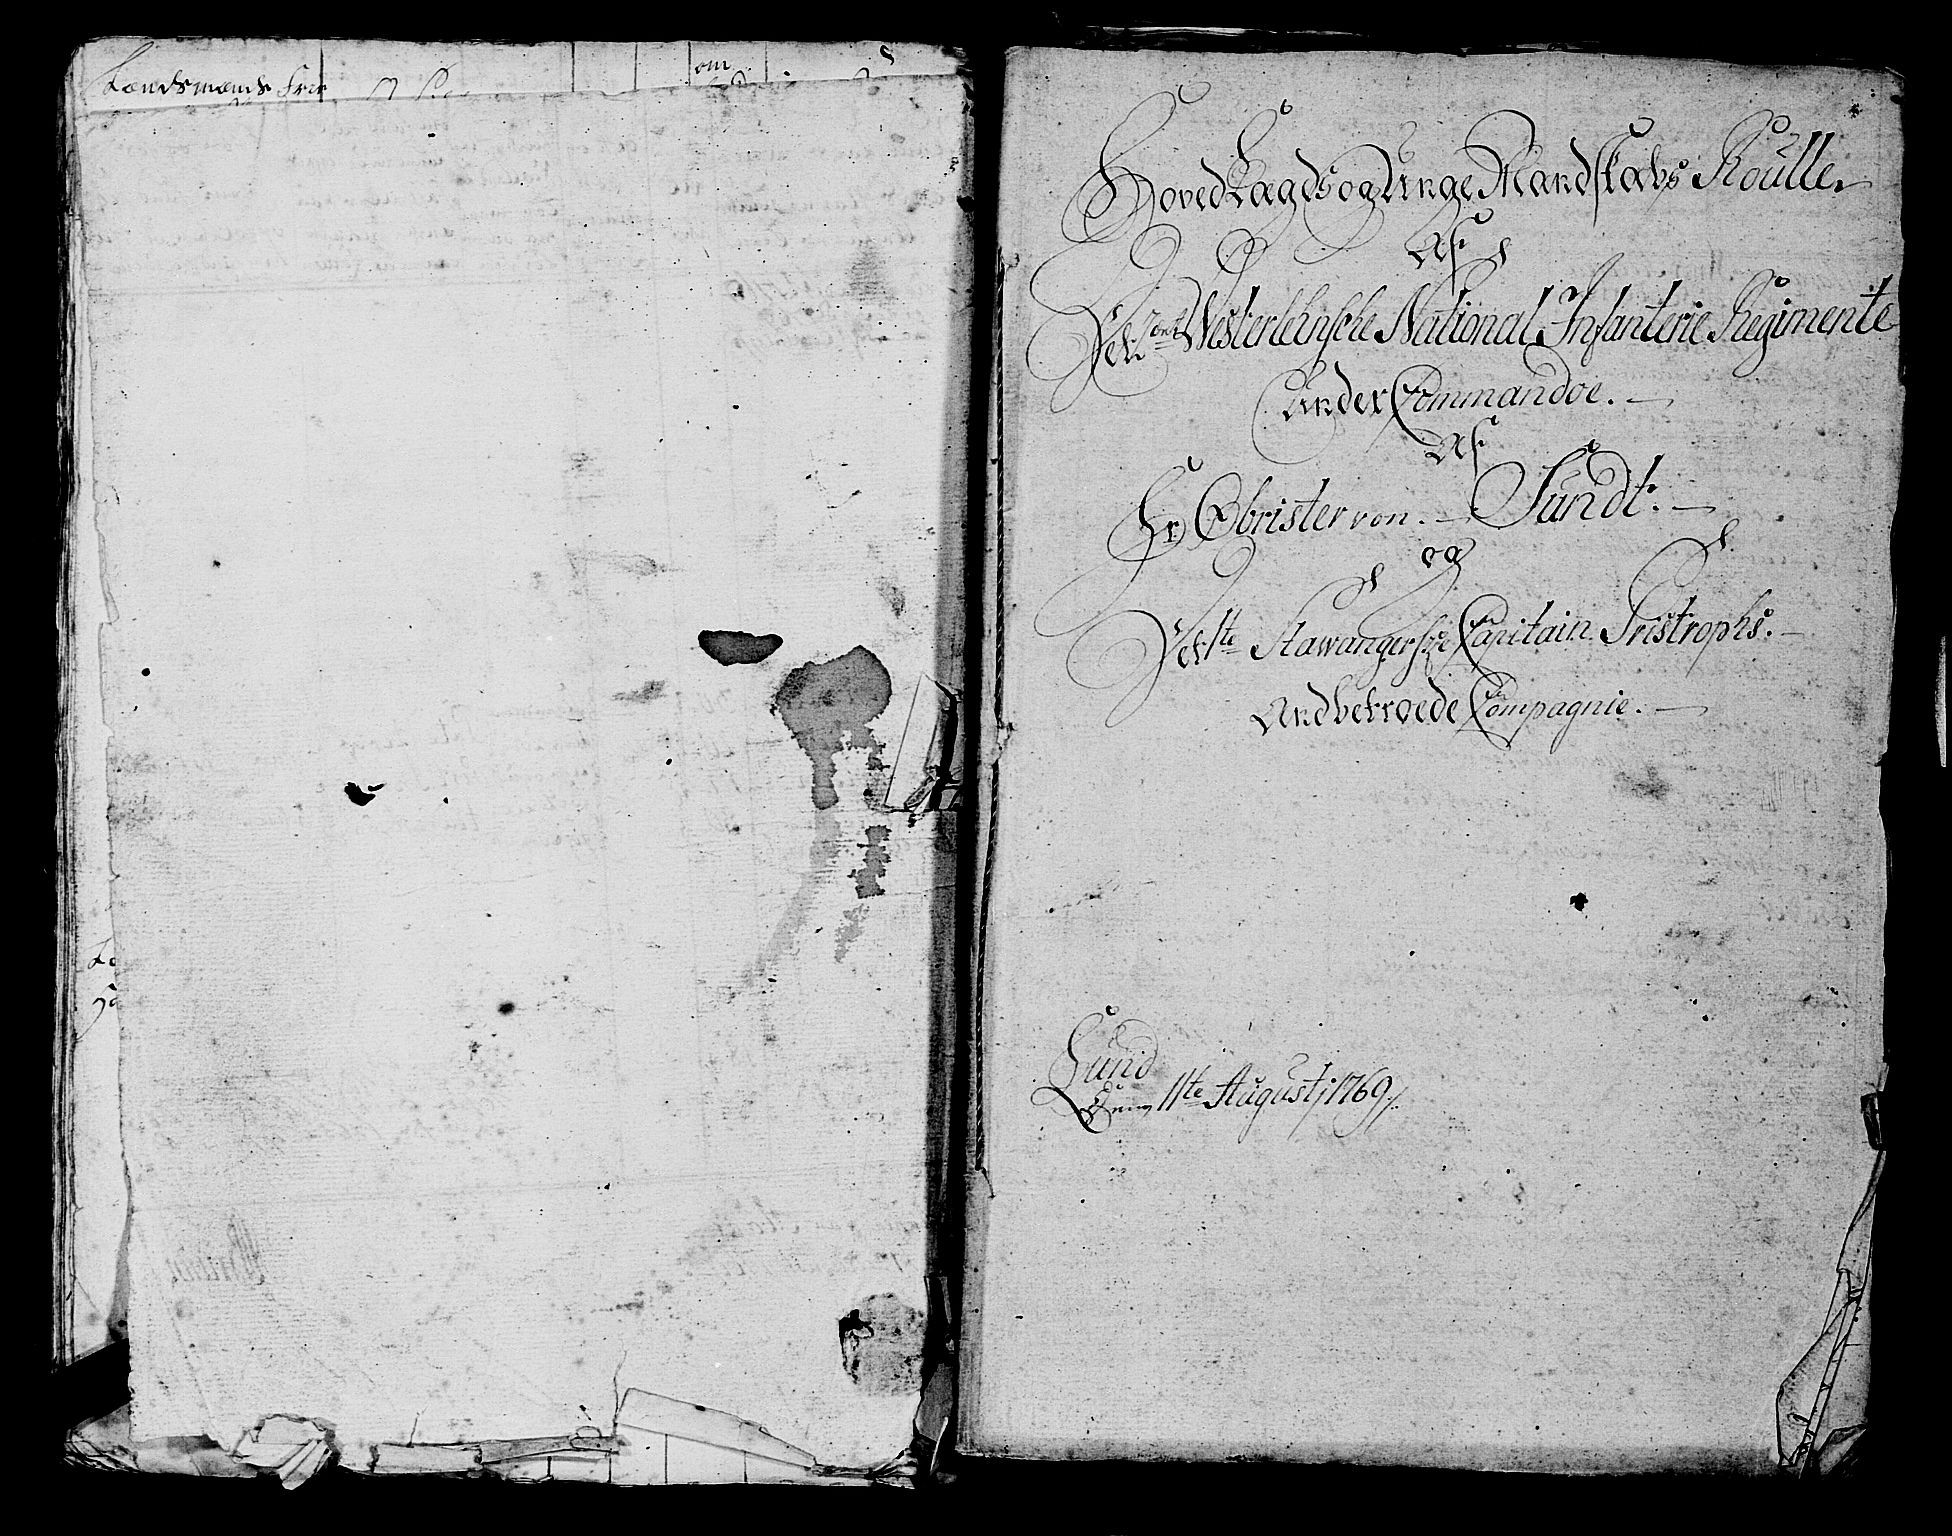 om
Lændsmænds
Hoved Lægds og Unge Mandskabs Roulle
Af
Det 2det Westerlehnsche National Infanterie Regimente
Under Commandoe. —
Af
Hr Obrister von. — Sundt. —
og
Det 1te Stawangerske Capitain Tristrophs. —
Andbetroede Compagnie. —
Lund
Den 11te August, 1769/.